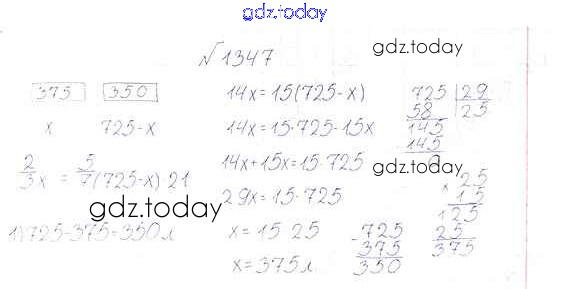 gdz.today
№1347
gdz.today
375 350
x 725-x
2/3x = 5/7(725-x) 21
gdz.today
1) 725-375=350 л
14x=15(725-x)
14x=15·725-15x
14x+15x=15·725
29x=15·725
x=15 25
x=375 л
725 29
58 25
145
145
0
gdz.today
×25
15
125
25
375
-725
375
350